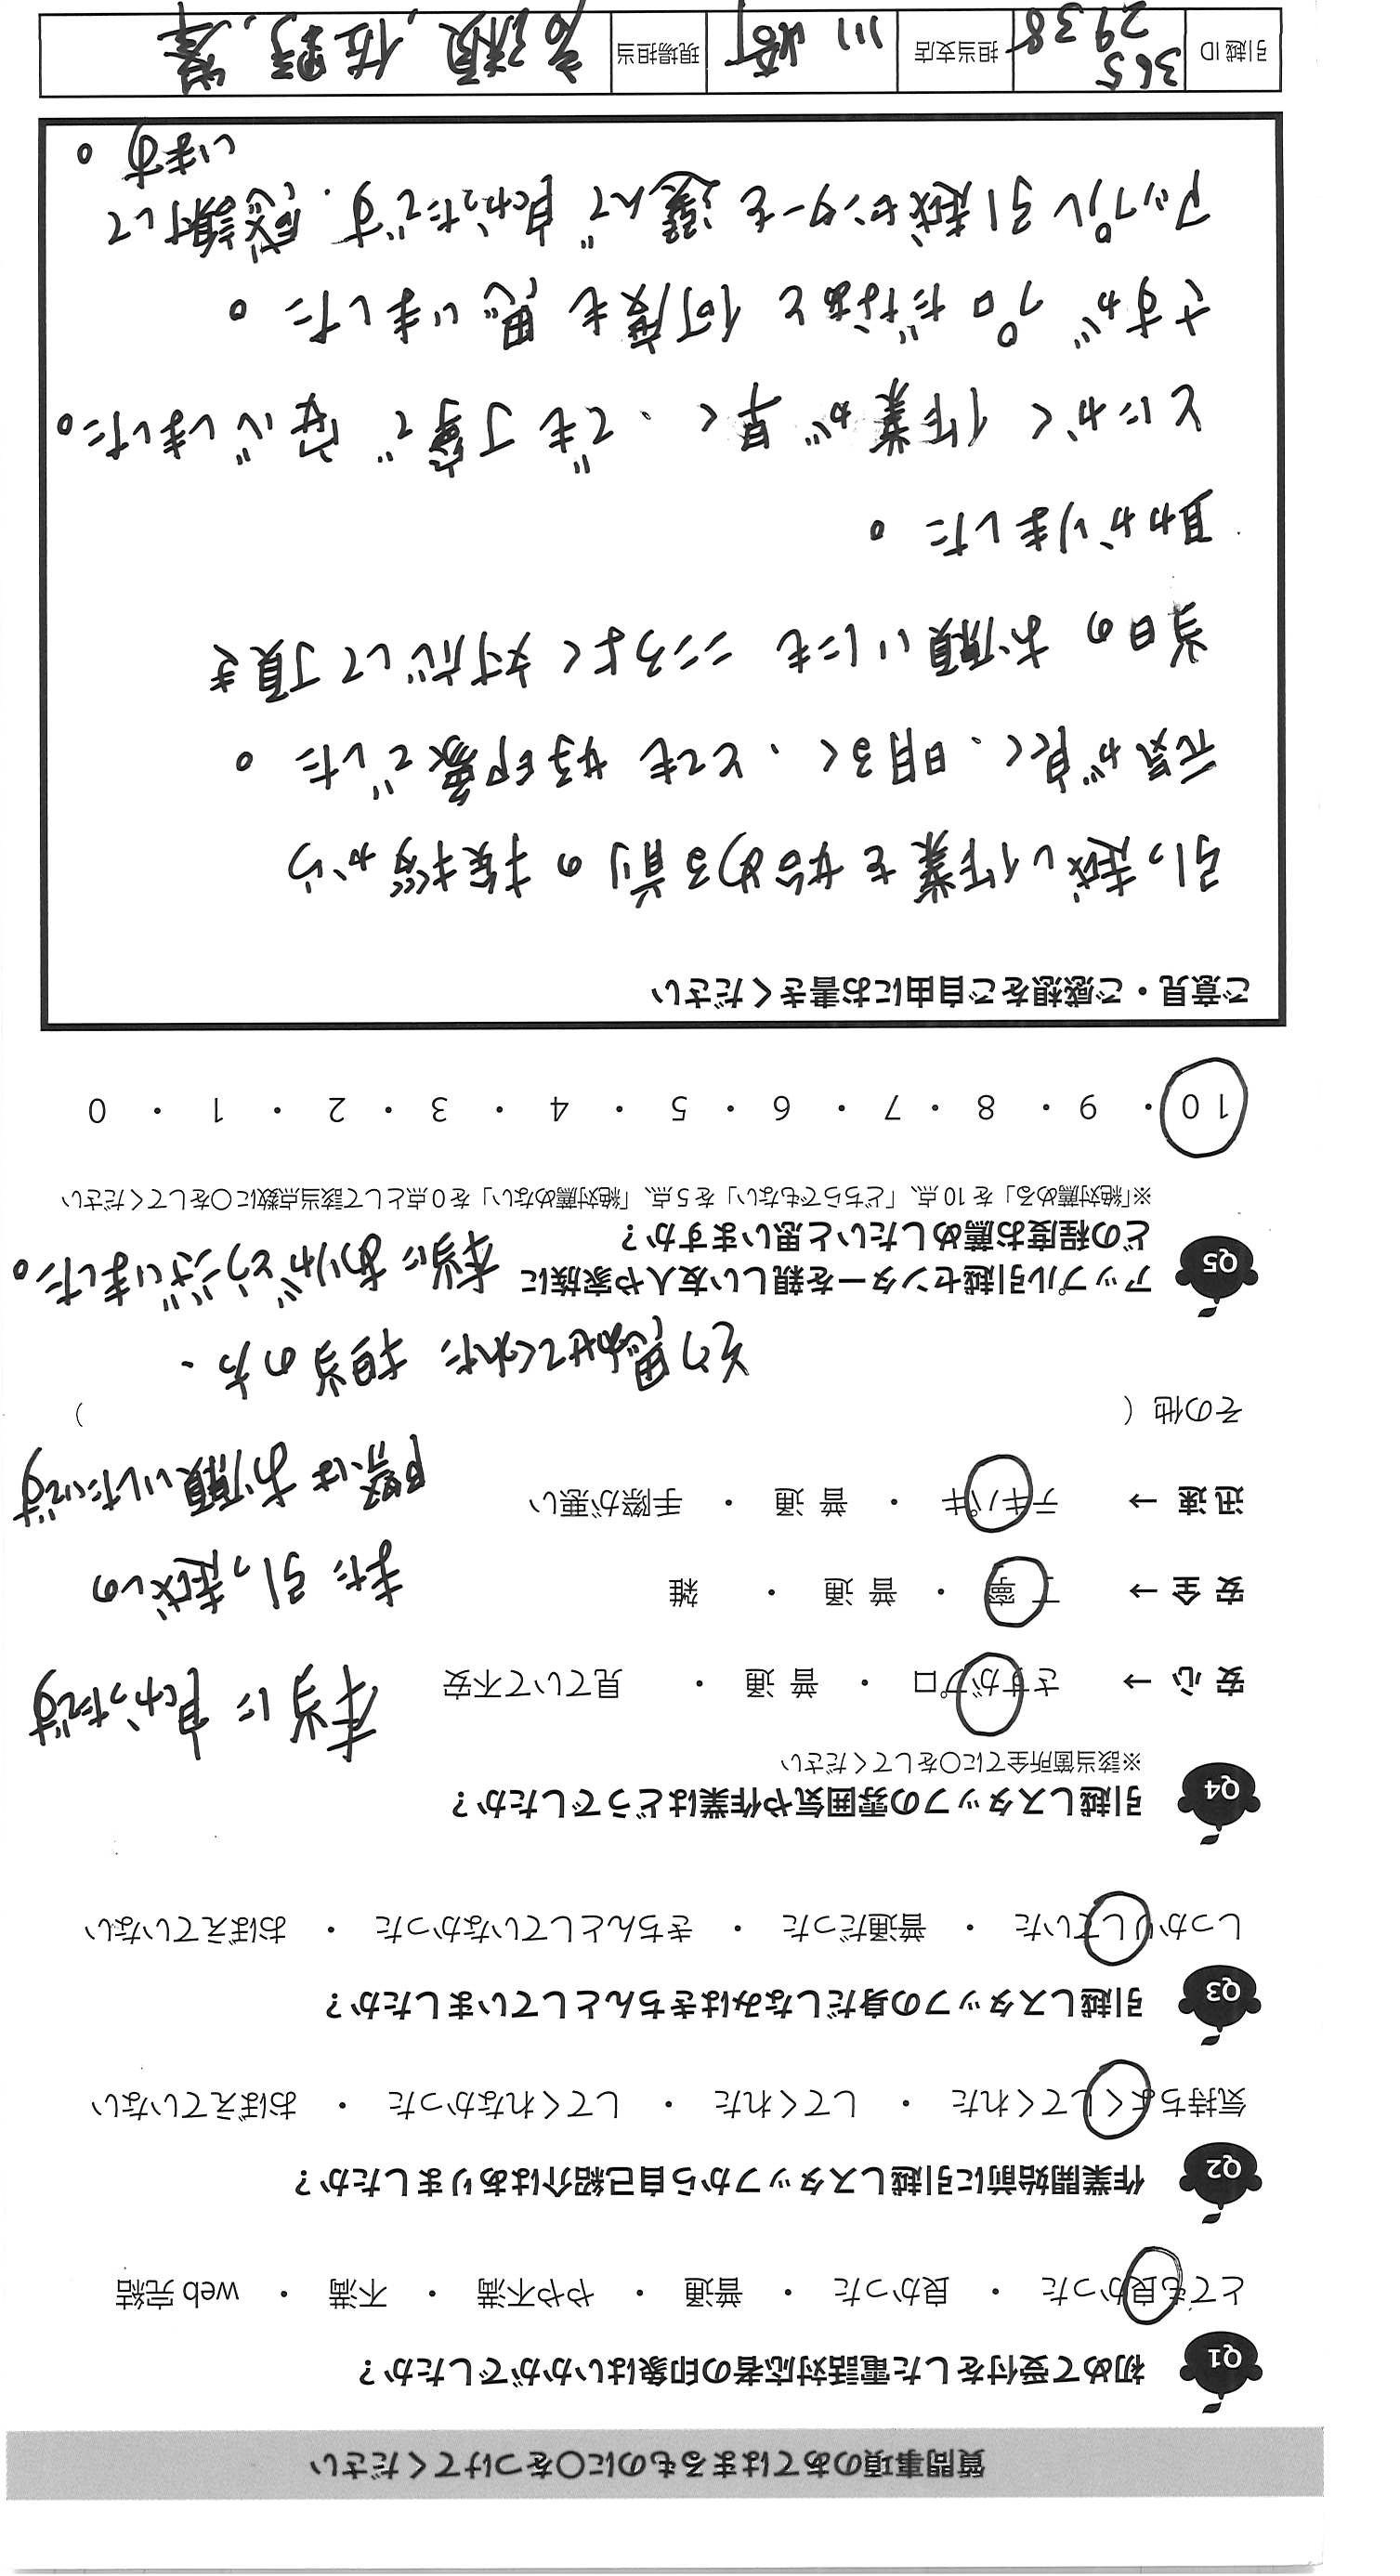 質問事項のあてはまるものに〇をつけてください
Q1 初めて受付をした電話対応者の印象はいかがでしたか？
とても良かった ・ 良かった ・ 普通 ・ やや不満 ・ 不満 ・ web 完結
Q2 作業開始前に引越しスタッフから自己紹介はありましたか？
気持ちよくしてくれた ・ してくれた ・ してくれなかった ・ おぼえていない
Q3 引越しスタッフの身だしなみはきちんとしていましたか？
しっかりしていた ・ 普通だった ・ きちんとしていなかった ・ おぼえていない
Q4 引越しスタッフの雰囲気や作業はどうでしたか？
※該当箇所全てに〇をしてください
安 心 → さすがプロ ・ 普 通 ・ 見ていて不安
安 全 → 丁 寧 ・ 普 通 ・ 雑
迅 速 → テキパキ ・ 普 通 ・ 手際が悪い
その他（ ）
本当に良かったです
また引っ越しの
際はお願いしたいです
そう思わせてくれた担当の方、
本当にありがとうございました。
Q5 アップル引越センターを親しい友人や家族に
どの程度お薦めしたいと思いますか？
※「絶対薦める」を 10 点、「どちらでもない」を 5 点、「絶対薦めない」を 0 点として該当点数に〇をしてください
10 ・ 9 ・ 8 ・ 7 ・ 6 ・ 5 ・ 4 ・ 3 ・ 2 ・ 1 ・ 0
ご意見・ご感想をご自由にお書きください
引っ越し作業を始める前の挨拶から
元気が良く、明るく、とても好印象でした。
当日のお願いにもこころよく対応して頂き
助かりました。
とにかく作業が早く、でも丁寧で安心でした。
さすがプロだなぁと何度も思いました。
アップル引越センターを選んで良かったです。感謝して
います。
引越 ID 365 2938 担当支店 川崎 現場担当 高瀬, 佐野,